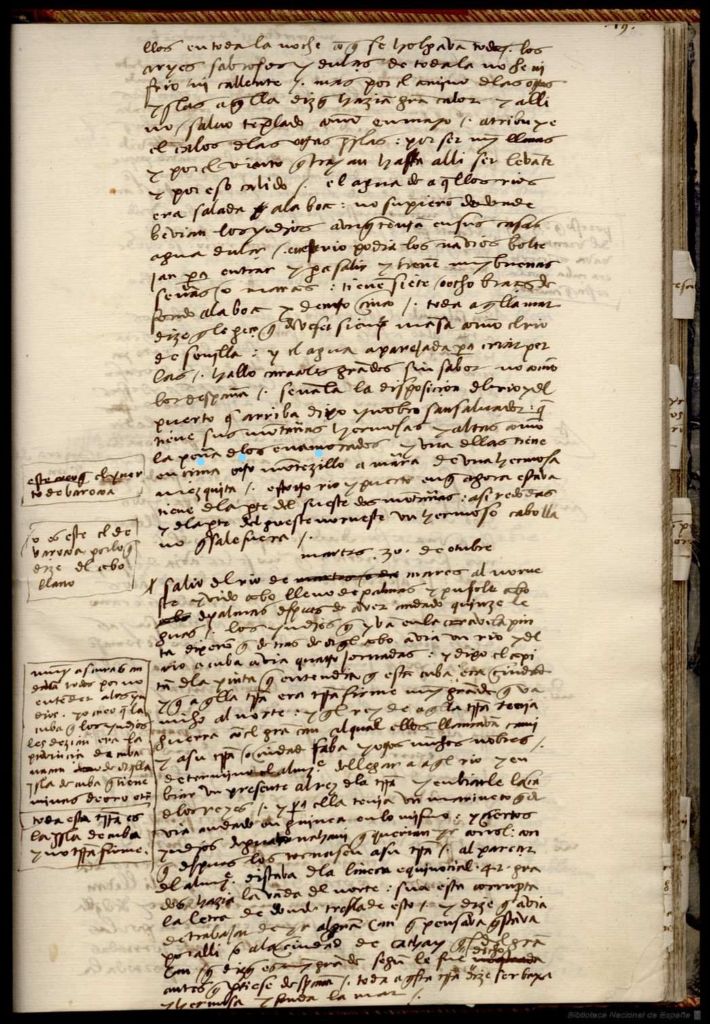 19.
llos en toda la noche o q̃ se holgavan todos /. los
ayres sabrosos y dulçes de toda la noche ni
frio ni caliente /. mas por el camino dlas otras
yslas a q̃lla dizq̃ hazia grã calor y alli
no / salvo tẽplado como en mayo /. atribuye
el calor dlas otras yslas : por ser muy llanas
y por el viento q̃ trayan hasta alli ser levãte
y por eso calido /. el agua de aq̃llos rios
era salada a la boca : no supierõ de donde
bevian los yndios avnq̃ teniã en sus casas
agua dulçe /. en este rio podiã los navios bolte
jar pa entrar y pa salir y tienẽ muy buenas
señas o marcas : tienẽ siete / ocho braças de
fondo a la boca y dentro çinco /. toda aq̃lla mar
dize q̃ le pareçe q̃ deve ser siempre mãsa como el rio
de sevilla : y el agua aparejada pa criar per
las /. hallo caracoles grãdes sin sabor no como
los despaña /. señala la disposiçion dl rio y dl
puerto q̃ arriba dixo y nõbro san salvador : q̃
tiene sus mõtañas hermosas y altas como
la peña dlos enamorados y vna dellas tiene
ençima otro mõtezillo a mãra de vna hermosa
mezquita /. este otro rio y puerto en q̃ agora estava
tiene dla parte del sueste dos mõtañas : asi redõdas
y dla parte del gueste norueste vn hermoso cabo lla
no q̃ sale fuera /.
martes . 30 . de otubre
salio del rio de mares al norue
ste y vido cabo lleno de palmas y pusole cabo
de palmas despues de aver andado quinze le
guas /. los yndios q̃ yvã en la caravela pin
ta dixerõ q̃ detras de aq̃l cabo avia vn rio y dl
rio a cuba avia quatro jornadas : y dixo el capi
tã dla pinta q̃ entendia q̃ esta cuba era çiudad
y q̃ aq̃lla trrã era trrã firme muy grãde q̃ va
mucho al norte : y q̃ l rey de aq̃lla trrã tenia
guerra cõ el grã can al qual ellos llamavan cami
y a su trrã o çiudad faba y otros muchos nõbres /.
determino el almye de llegar a aq̃l rio y en
biar vn presente al rey dla trrã y enbiarle la carta
dlos reyes /. y pa ella tenia vn marinero q̃ a
via andado en guinea en lo mismo : y çiertos
yndios de guanahani q̃ querian yr con el : con
q̃ despues los tornasen a su trrã /. al pareçer
dl almye distava dla linea equinoçial . 42 . gra
dos hazia la vãda del norte : si no esta corrupta
la letra de donde treslade esto /. y dize q̃ avia
de trabajar de yr al grã Can q̃ pensava q̃ stava
por alli o a la çiudad de cathay q̃ es del grã
Can / q̃ dizq̃ es muy grãde segũ le fue dicho
antes q̃ partiese despaña /. toda aq̃sta trrã dize ser baxa
y hermosa y fonda la mar /.
este creo q̃ es el puer
to de baracoa
o es este el de
baracoa por lo q̃
dize dl cabo
llano
muy a escuras an
davã todos por no
entẽder a los yn
dios . yo creo q̃ la
cuba q̃ los yndios
les dezian era la
provinçia de cubanacan de aq̃lla
ysla de cuba q̃ tiene
minas de oro etc̃
toda esta trrã es
la ysla de cuba
y no trrã firme.
Biblioteca Nacional de España